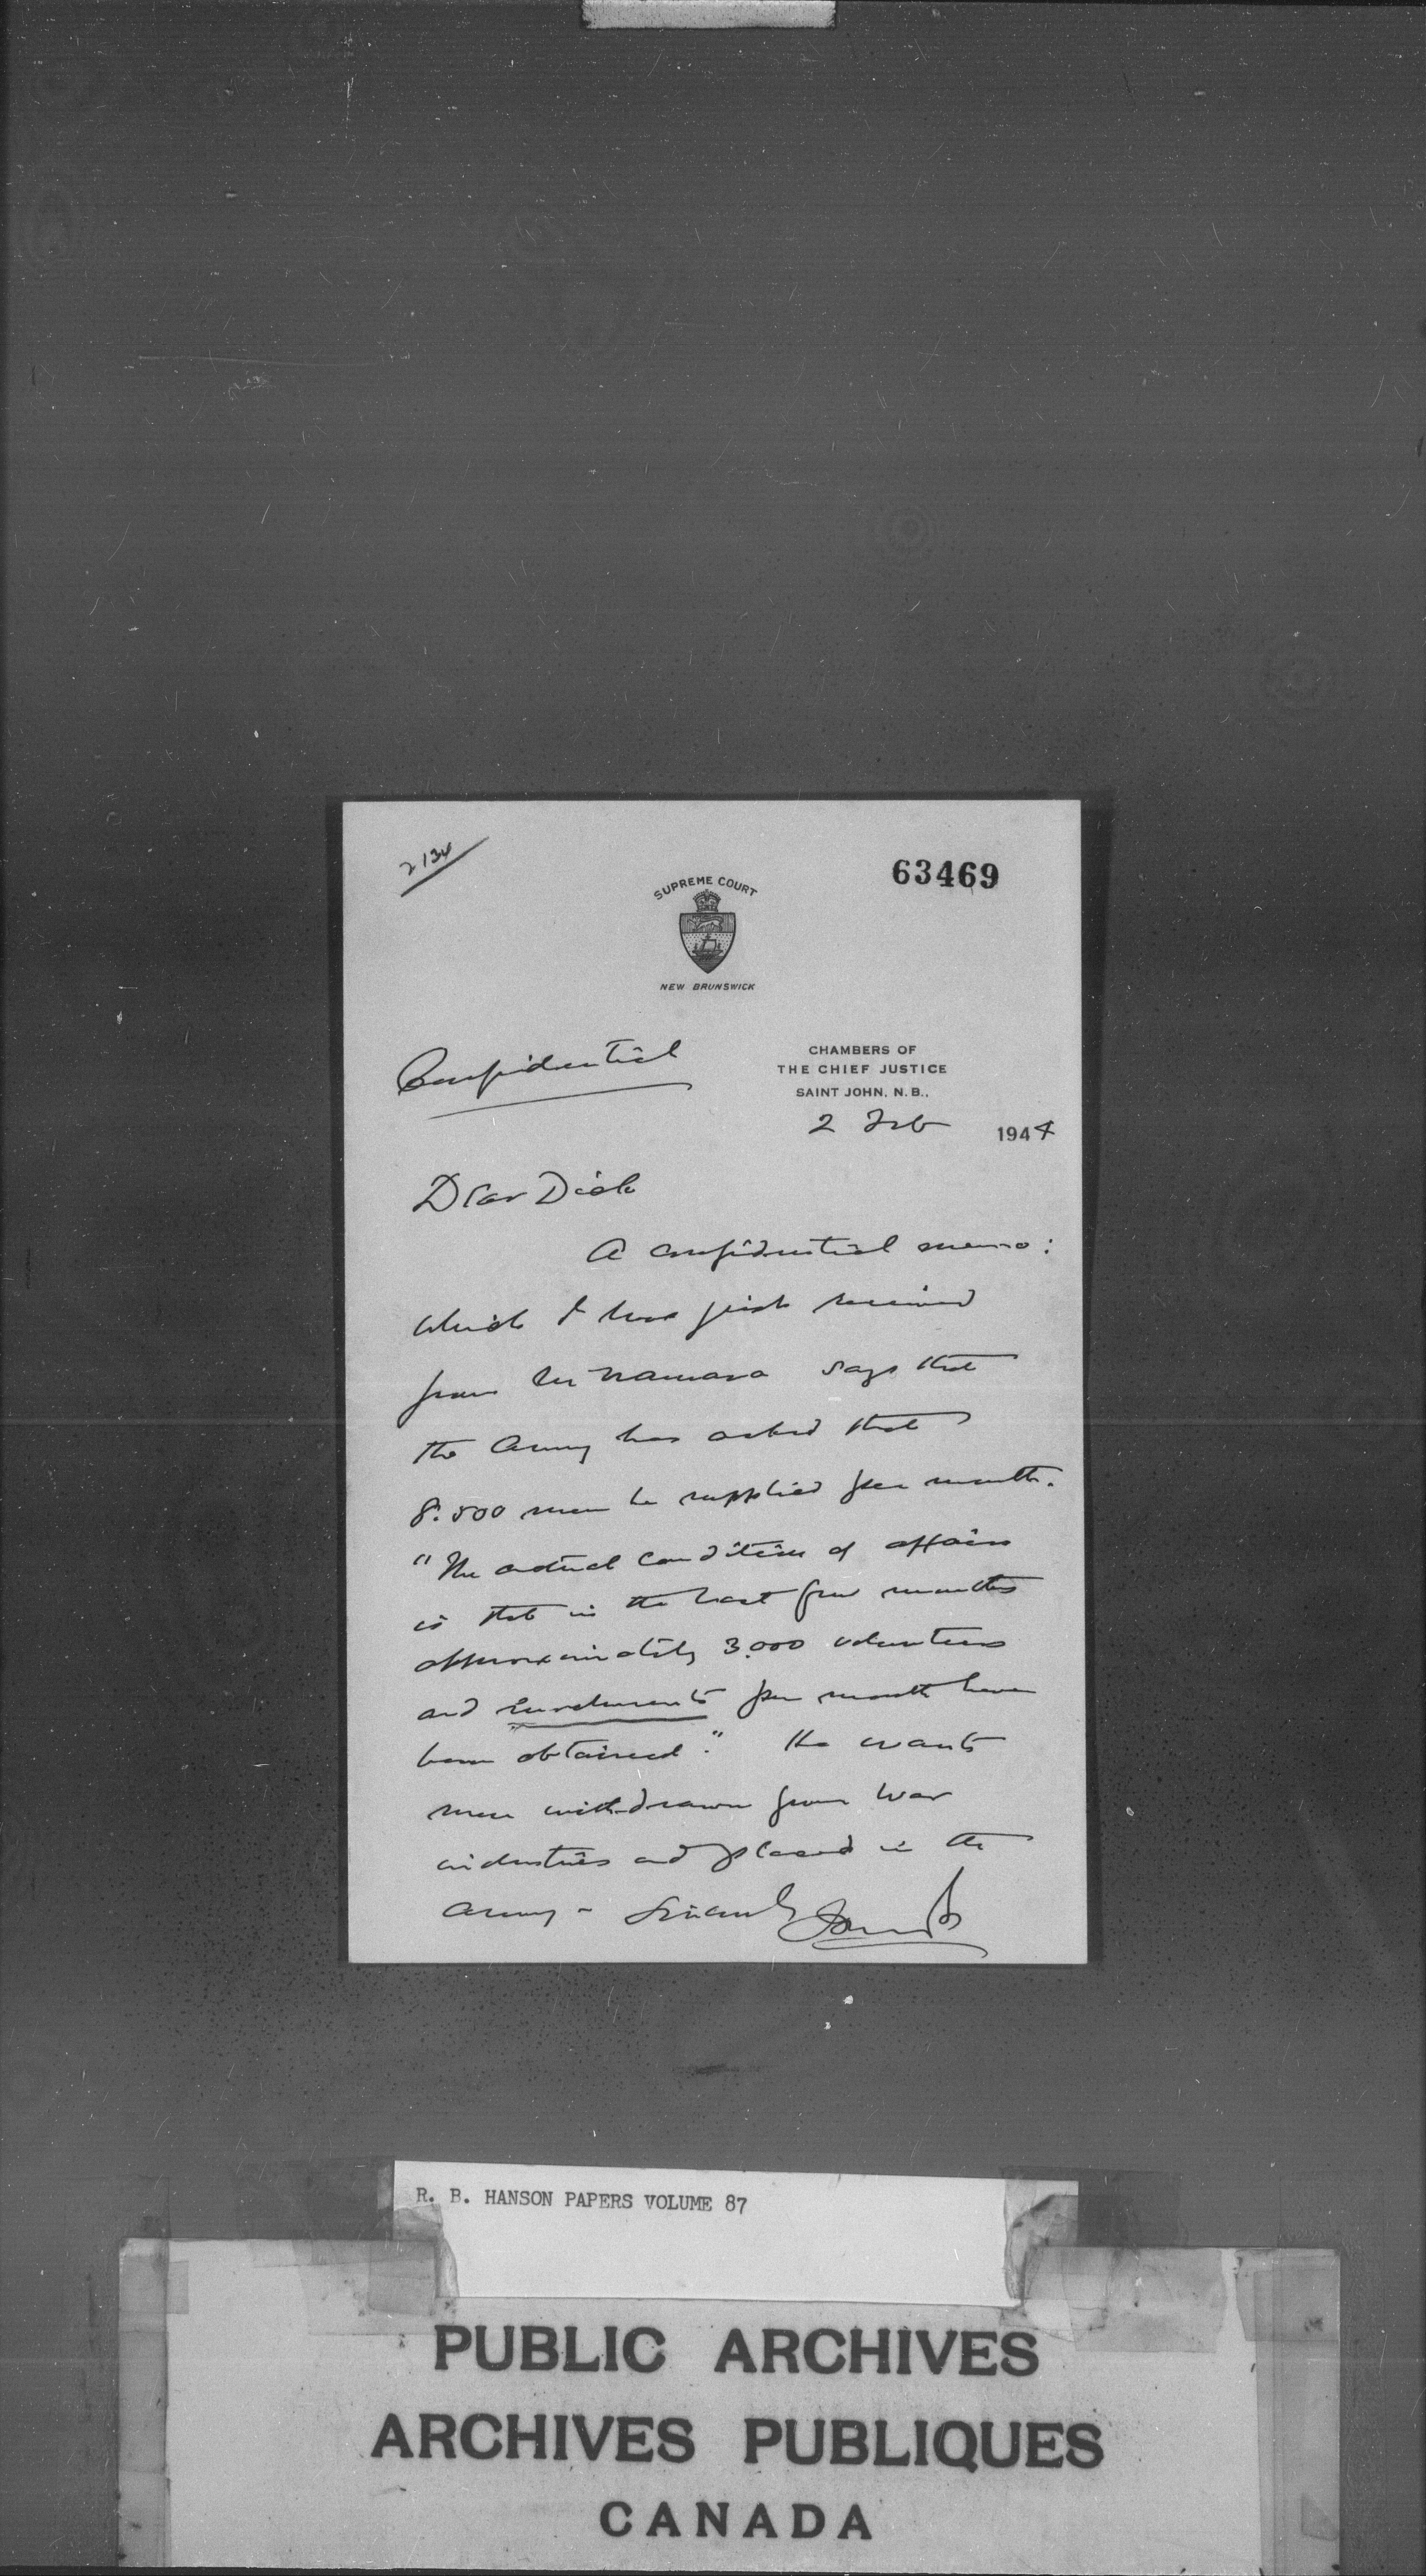 2134
63469
SUPREME COURT
NEW BRUNSWICK
Confidential
CHAMBERS OF
THE CHIEF JUSTICE
SAINT JOHN, N.B.,
2 Feb 1944
Dear Dick
A confidential memo:
which I have just received
from McNamara says that
the Army has asked that
8.500 men be supplied per month.
"The actual condition of affairs
is that in the last few months
approximately 3.000 volunteers
and enrolments per month have
been obtained." He wants
men withdrawn from war
industries and placed in the
army - Sincerely
R. B. HANSON PAPERS VOLUME 87
PUBLIC ARCHIVES
ARCHIVES PUBLIQUES
CANADA